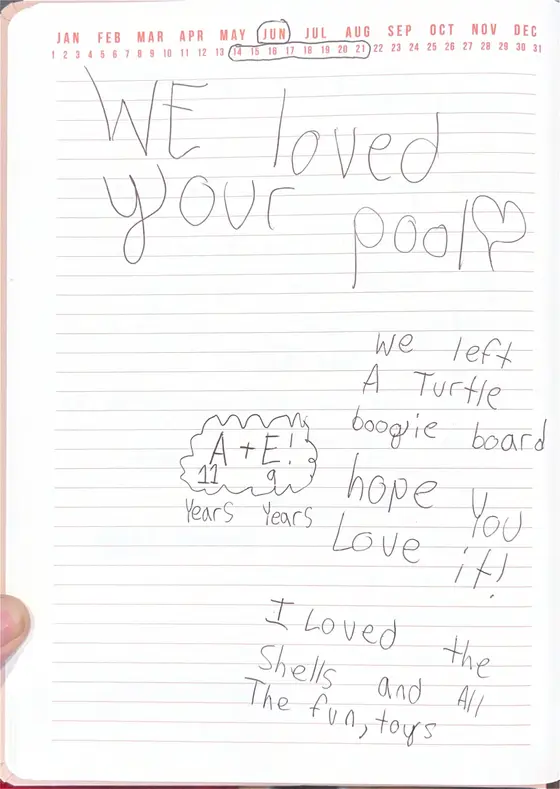 JAN FEB MAR APR MAY JUN JUL AUG SEP OCT NOV DEC
1 2 3 4 5 6 7 8 9 10 11 12 13 14 15 16 17 18 19 20 21 22 23 24 25 26 27 28 29 30 31
WE loved
your pool
we left
A Turtle
boogie board
hope you
Love it!
A + E!
11 9
Years Years
I Loved the
Shells and All
The fun, toys